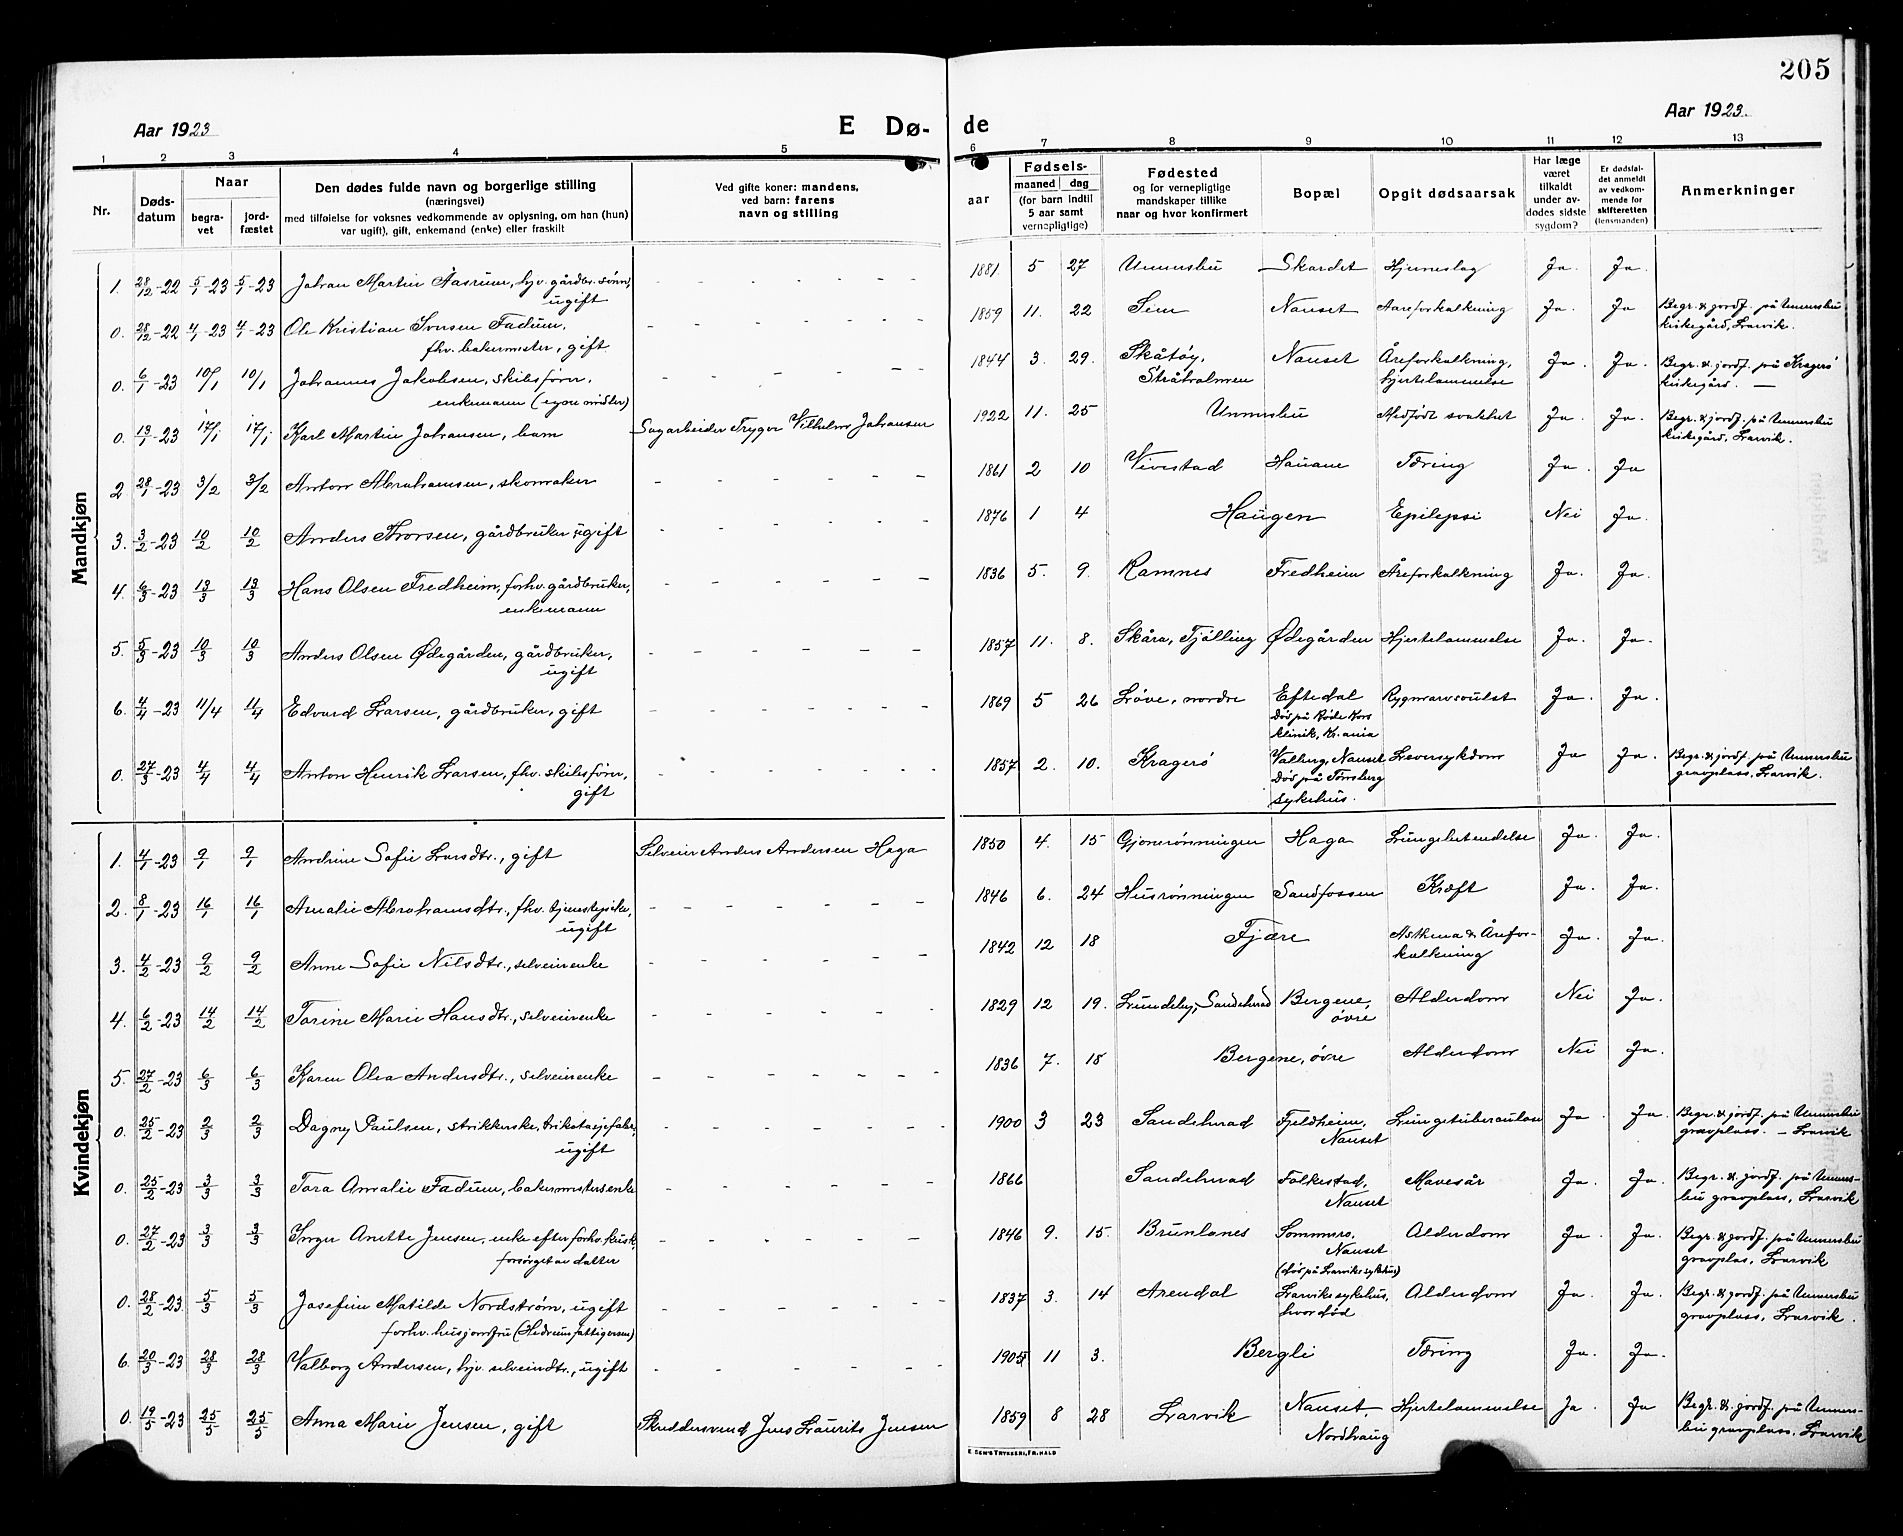 205
Aar 1923
E Dø-
de
Aar 1923.
1 2 3 4 5 6 7 8 9 10 11 12 13
Nr.
Døds-
datum
Naar
begra-
vet
jord-
fæstet
Den dødes fulde navn og borgerlige stilling
(næringsvei)
med tilføielse for voksnes vedkommende av oplysning, om han (hun)
var ugift), gift, enkemand (enke) eller fraskilt
Ved gifte koner: mandens,
ved barn: farens
navn og stilling
aar
Fødsels-
maaned dag
(for barn indtil
5 aar samt
vernepligtige)
Fødested
og for vernepligtige
mandskaper tillike
naar og hvor konfirmert
Bopæl
Opgit dødsaarsak
Har læge
været
tilkaldt
under av-
dødes sidste
sygdom?
Er dødsfal-
det anmeldt
av vedkom-
mende for
skifteretten
(lensmanden)
Anmerkninger
Mandkjøn
1. 28/12-22 5/1-23 5/1-23 Johan Martin Åsrum, hjv. gårdbr. sønn, 1881 5 27 Unnesbu Skardet Hjerneslag Ja. Ja.
ugift
0. 28/12-22 4/1-23 4/1-23 Ole Kristian Jonsen Fadum, 1859 11. 22 Sem Nanset Aareforkalkning Ja. Ja Begr. & jordf. på Unnesbu
fhv. bakermester, gift kirkegård, Larvik.
0. 6/1-23 10/1 10/1 Johannes Jakobsen, skibsfører, 1844 3. 29. Skåtøy, Nanset Åreforkalkning, Ja. Ja. Begr. & jordf. på Kragerø
enkemann (egne midler) Stråholmen hjertelammelse kirkegård. —
0. 13/1-23 17/1 17/1 Karl Martin Johansen, barn Sagarbeider Trygve Vilhelm Johansen 1922 11. 25 Unnesbu Medfødt svakhet Ja. Ja. Begr. & jordf. på Unnesbu
kirkegård, Larvik.
2 28/1-23 3/2 3/2 Anton Abrahamsen, skomaker 1861 2 10 Vivestad Hauane Tæring Ja. Ja
3. 3/2-23 10/2 10/2 Anders Thorsen, gårdbruker, ugift 1876 1 4 Haugen Epilepsi Nei Ja.
4. 6/3-23 13/3 13/3 Hans Olsen Fredheim, forhv. gårdbruker, 1836 5. 9. Ramnes Fredheim Åreforkalkning Ja. Ja.
enkemann
5. 5/3-23 10/3 10/3 Anders Olsen Ødegården, gårdbruker, 1857 11. 8. Skåra, Tjølling Ødegården Hjertelammelse Ja. Ja.
ugift
6. 4/4-23 11/4 11/4 Edvard Larsen, gårdbruker, gift 1869 5 26 Løve, nordre Eftedal Rygmarvsvulst Ja. Ja.
død på Røde Kors
klinik, Kr.ania
0. 27/3-23 4/4 4/4 Anton Henrik Larsen, fhv. skibsfører, 1857 2. 10. Kragerø Valberg, Nanset Leversykdom Ja Ja. Begr. & jordf. på Unnesbu
gift død på Tønsberg gravplass, Larvik.
sykehus.
Kvindekjøn
1. 4/1-23 9/1 9/1 Andrine Sofie Larsdtr., gift Selveier Anders Andersen Haga 1850 4. 15 Gjonerønningen Haga Lungebetendelse Ja. Ja.
2. 8/1-23 16/1 16/1 Amalie Abrahamsdtr., fhv. tjenstepike, 1846 6. 24 Husrønningen Sandfossen Kræft Ja. Ja.
ugift
3. 4/2-23 9/2 9/2 Anne Sofie Nilsdtr., selveierenke 1842 12 18 Fjære Asthma & Årefor- Ja. Ja.
kalkning
4. 6/2-23 14/2 14/2 Torine Marie Hansdtr., selveierenke 1829 12 19. Lundeby, Sandeherad Bergene, Alderdom Nei Ja.
øvre
5. 27/2-23 6/3 6/3 Karen Olea Andersdtr., selveierenke 1836 7. 18 Bergene, øvre Alderdom Nei Ja.
0. 25/2-23 2/3 2/3 Dagny Paulsen, strikkerske, trikotasjefabr., 1900 3 23 Sandeherad Fjeldheim, Lungetuberculose Ja. Ja. Begr. & jordf. på Unnesbu
ugift Nanset gravplass. - Larvik
0. 25/2-23 3/3 3/3 Tora Amalie Fadum, bakermesterenke 1866 Sandeherad Falkestad, Mavesår Ja. Ja. Begr. & jordf. på Unnes-
Nanset bu gravplass, Larvik
0. 27/2-23 3/3 3/3 Inger Anette Jensen, enke efter forhv. kusk, 1846 9. 15. Brunlanes Sommero, Alderdom Ja. Ja. Begr. & jordf. på Unnesbu
forsørget av datter Nanset gravplass, Larvik
(død på Larviks sykehus)
0. 28/2-23 5/3 5/3 Josefine Matilde Nordstrøm, ugift 1837 3. 14 Arendal Larviks sykehus, Alderdom Ja. Ja. Begr. & jordf. på Unnesbu
forhv. husjomfru (Hedrum fattigvesen) hvor død gravplass, Larvik.
6. 20/3-23 28/3 28/3 Valborg Andersen, hjv. selveierdtr., ugift 1905 11 3. Bergli Tæring Ja. Ja.
0. 19/5-23 25/5 25/5 Anna Marie Jensen, gift Skreddersvend Jens Laurits Jensen 1859 8 28 Larvik Nanset, Hjertelammelse Ja. Ja Begr. & jordf. på Unnes-
Nordhaug bu gravplass, Larvik
TRYKKERI, FR.HALD